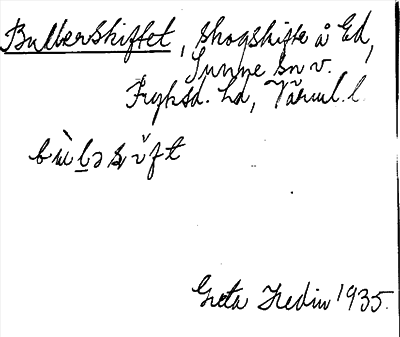 Bullerskiftet, skogskifte å Ed,
Sunne sn v.
Fryksd. hd, Värml. l.
bùləsǐft
Greta Hedin 1935.